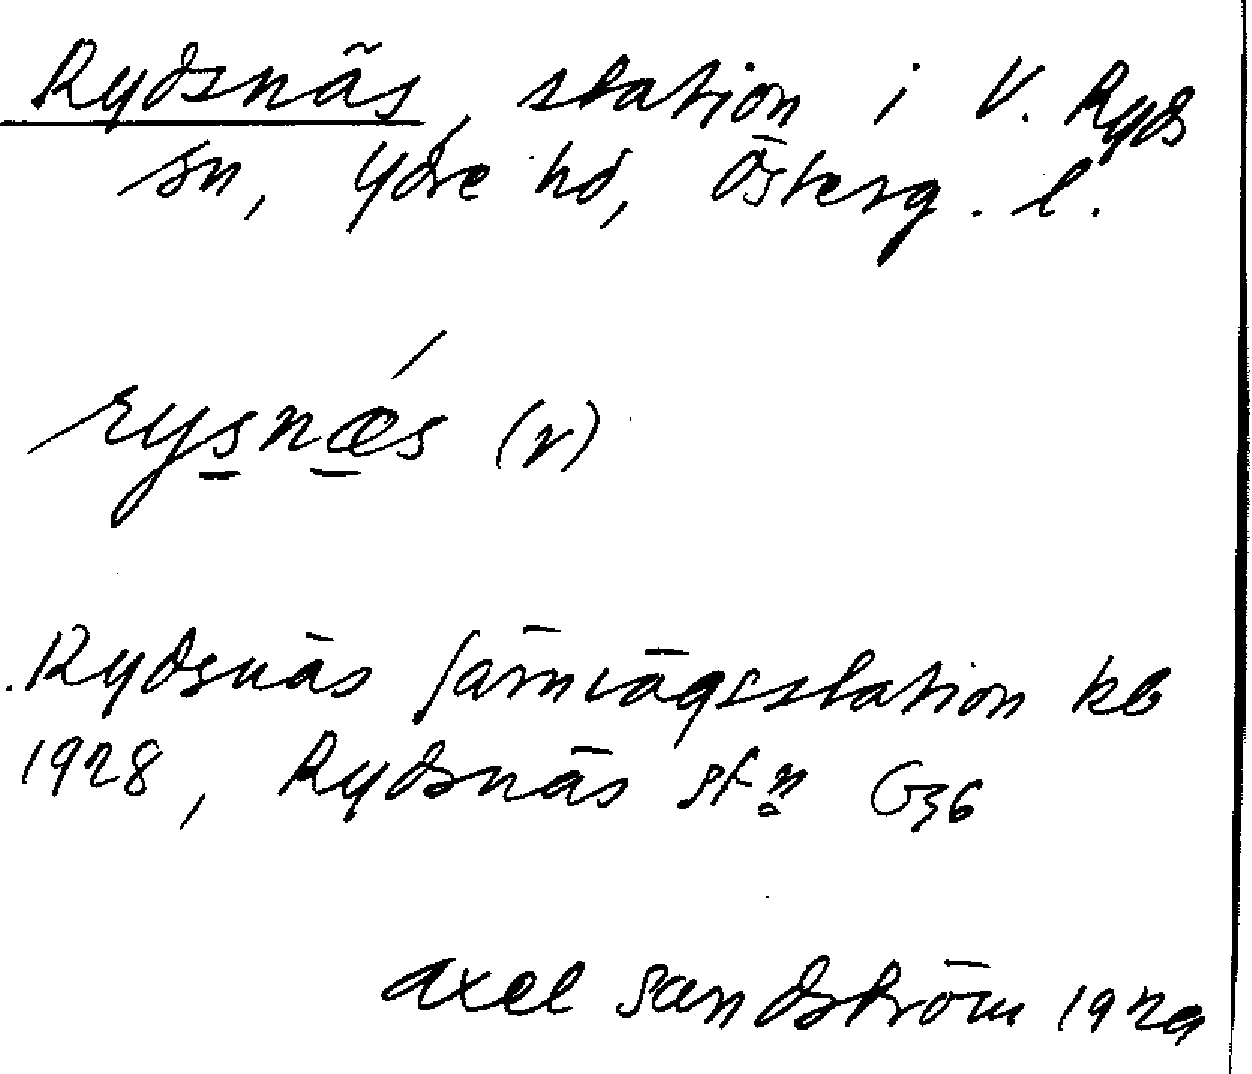 Rydsnäs, station i V. Ryds
sn, Ydre hd, Österg. l.
rysnæs (r)
Rydsnäs järnvägsstation kb
1928, Rydsnäs stn G36
Axel Sandström 1929